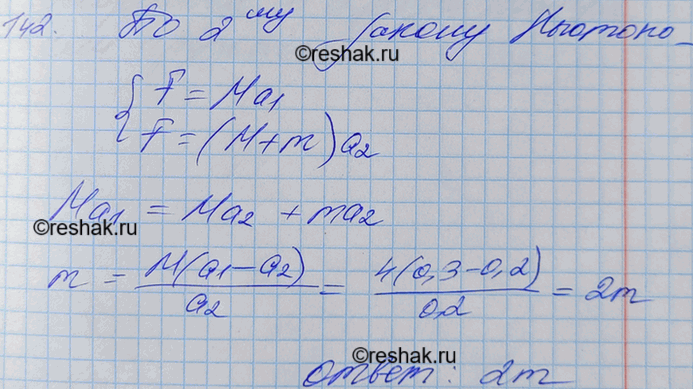 142. По 2 ому закону Ньютона
©reshak.ru
F = Ma₁
F = (M+m)a₂
Ma₁ = Ma₂ + ma₂
©reshak.ru
m = M(a₁-a₂)/a₂ = 4(0,3-0,2)/0,2 = 2т
©reshak.ru
ответ: 2т